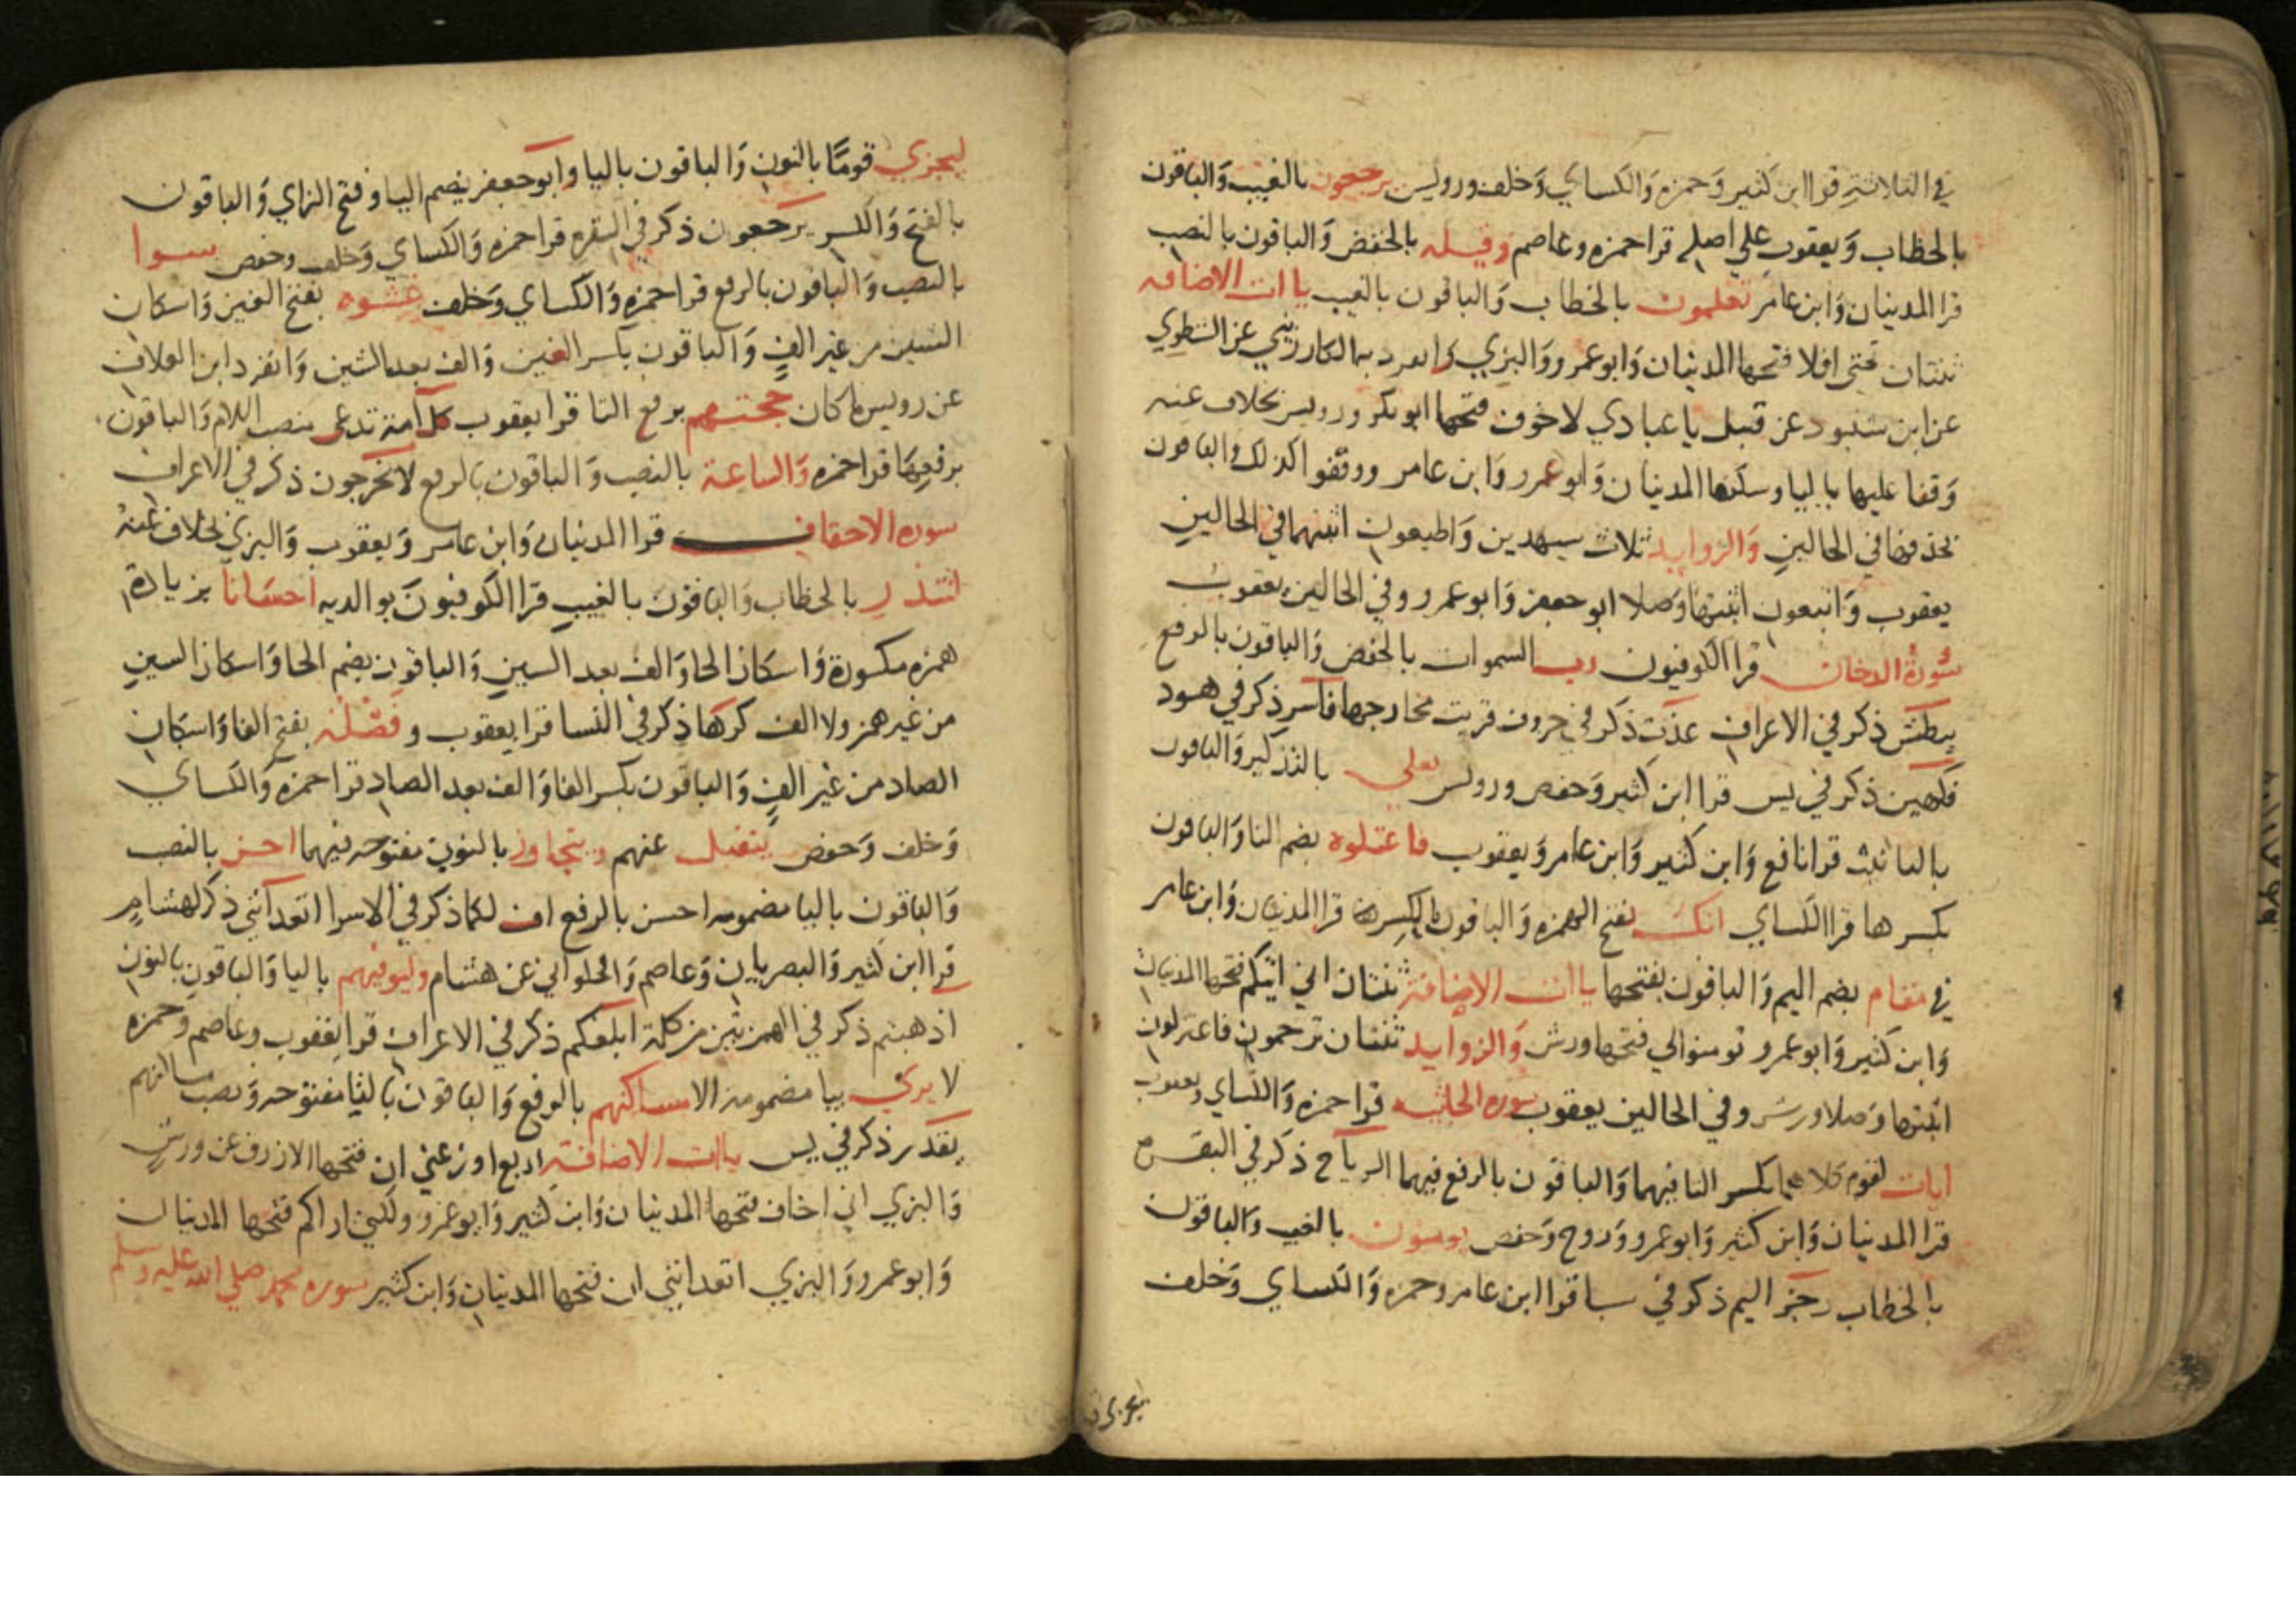 في الثلاثة قرا ابن كثير وَحمزه وَالكساي وَخلف ورويس يرجعون بالغيب وَالباقون
بالخطاب وَيعقوب علي اصله قرا حمزه وعاصم وقيله بالخفض وَالباقون بالنصب
قرا المدنيان وَابن عامر تعلمون بالخطاب وَالباقون بالغيب ياات الاضافه
ثنتان تحتي افلا فتحها المدنيان وَابو عمرو وَالبزي وانفرد بها الكارزيني عن الشطوي
عن ابن شنبوذ عن قنبل يا عبادي لا خوف فتحها ابو بكر ورويس بخلاف عنه
وَقفا عليها باليا وسكنها المدنيان وَابو عمرو وَابن عامر ووقفوا كذلك والباقون
بحذفها في الحالين وَالزوايد ثلاث سيهدين وَاطيعون اثبتهما في الحالين
يعقوب وَاتبعون اثبتها وَصلا ابو جعفر وَابو عمرو وفي الحالين يعقوب
سُورَةُ الدخان قرا الكوفيون رب السموات بالخفض وَالباقون بالرفع
يبطش ذكر في الاعراف عذت ذكر في حروف قربت مخارجها فاسر ذكر في هود
فكهين ذكر في يس قرا ابن كثير وَحفص ورويس يغلي بالتذكير وَالباقون
بالتانيث قرا نافع وَابن كثير وَابن عامر وَيعقوب فاعتلوه بضم التا وَالباقون
بكسرها قرا الكساي انك بفتح الهمزه وَالباقون بالكسر قرا المدنيان وَابن عامر
في مقام بضم الميم وَالباقون بفتحها ياات الاضافة ثنتان اني اتيكم فتحها المدنيان
وَابن كثير وَابو عمرو تومنوا لي فتحها ورش وَالزوايد ثنتان ترجمون فاعتزلون
اثبتها وَصلا ورش وفي الحالين يعقوب سوره الجاثيه قرا حمزه وَالكساي ويعقوب
ايات لقوم كلاهما بكسر التا فيهما وَالباقون بالرفع فيهما الرياح ذكر في البقره
قرا المدنيان وَابن كثير وَابو عمرو وَروح وَحفص يومنون بالغيب والباقون
بالخطاب رجز اليم ذكر في سبا قرا ابن عامر وحمزه وَالكساي وَخلف
ليجزي قومًا بالنون وَالباقون باليا وابو جعفر بضم اليا وفتح الزاي وَالباقون
بالفتح وَالكسر يرجعون ذكر في البقره قرا حمزه وَالكساي وَخلف وحفص سوا
بالنصب وَالباقون بالرفع قرا حمزه وَالكساي وَخلف غشوه بفتح الغين وَاسكان
الشين من غير الفٍ وَالباقون بكسر الغين وَالف بعد الشين وَانفرد ابن العلاف
عن رويس ما كان حجتهم برفع التا قرا يعقوب كل امة تدعى بنصب اللام وَالباقون
برفعها قرا حمزه وَالساعة بالنصب وَالباقون بالرفع لا يخرجون ذكر في الاعراف
سوره الاحقاف قرا المدنيان وَابن عامر وَيعقوب وَالبزي بخلاف عنه
لتنذر بالخطاب وَالباقون بالغيب قرا الكوفيون بوالديه احسَانا بزيادة
همزه مكسورة وَاسكان الحا وَالف بعد السين وَالباقون بضم الحا وَاسكان السين
من غير همز ولا الف كرها ذكر في النسا قرا يعقوب و فَصْلُه بفتح الفا وَاسكان
الصاد من غير الفٍ وَالباقون بكسر الفا وَالف بعد الصاد قرا حمزه وَالكساي
وَخلف وَحفص يتقبل عنهم ويتجاوز بالنون مفتوحه فيهما احسن بالنصب
وَالباقون باليا مضمومه احسن بالرفع اف لكما ذكر في الاسرا اتعدانني ذكر لهشام
قرا ابن كثير وَالبصريان وَعاصم وَالحلواني عن هشام وليوفيهم باليا وَالباقون بالنون
اذهبتم ذكر في الهمزتين من كلمة ابلغكم ذكر في الاعراف قرا يعقوب وعاصم وحمزه
لا يرى بيا مضمومه الا مساكنهم بالرفع وَالباقون بالتا مفتوحه وَنصب مساكنهم
يقدر ذكر في يس ياات الاضافة اربع اوزعني ان فتحها الازرق عن ورش
وَالبزي اني اخاف فتحها المدنيان وَابن كثير وَابو عمرو ولكني اراكم فتحها المدنيان
وَابو عمرو وَالبزي اتعدانني ان فتحها المدنيان وَابن كثير سوره محمد صلي الله عليه وسلم